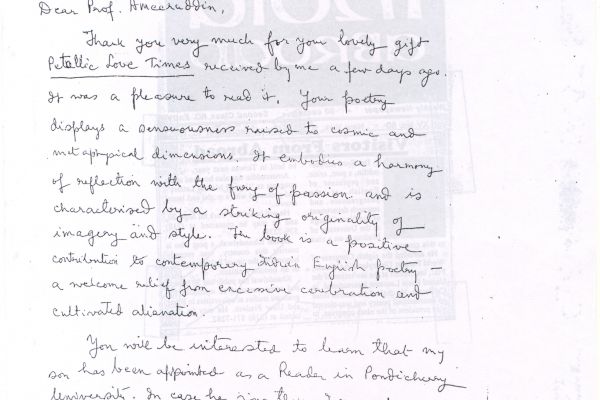 Dear Prof. Ameeruddin,
Thank you very much for your lovely gift
Petallic Love Times received by me a few days ago.
It was a pleasure to read it. Your poetry
displays a sensuousness raised to cosmic and
metaphysical dimensions. It embodies a harmony
of reflection with the fury of passion and is
characterised by a striking originality of
imagery and style. The book is a positive
contribution to contemporary Indian English poetry —
a welcome relief from excessive cerebration and
cultivated alienation.
You will be interested to learn that my
son has been appointed as a Reader in Pondicherry
University. In case he